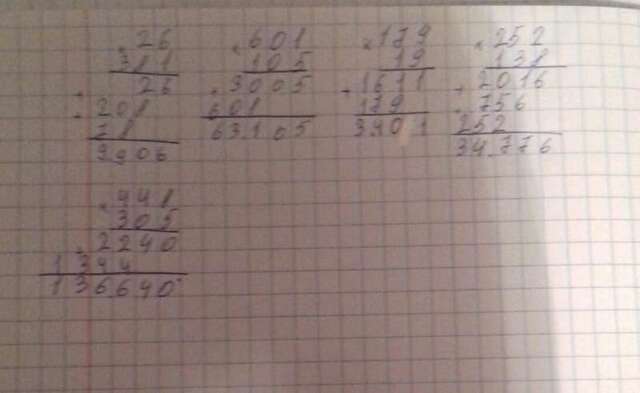 × 26
381
+ 26
+ 208
78
9906
× 601
105
+ 3005
601
63105
× 179
19
+ 1611
179
3401
× 252
138
+ 2016
+ 756
252
34776
× 448
305
+ 2240
1344
136640